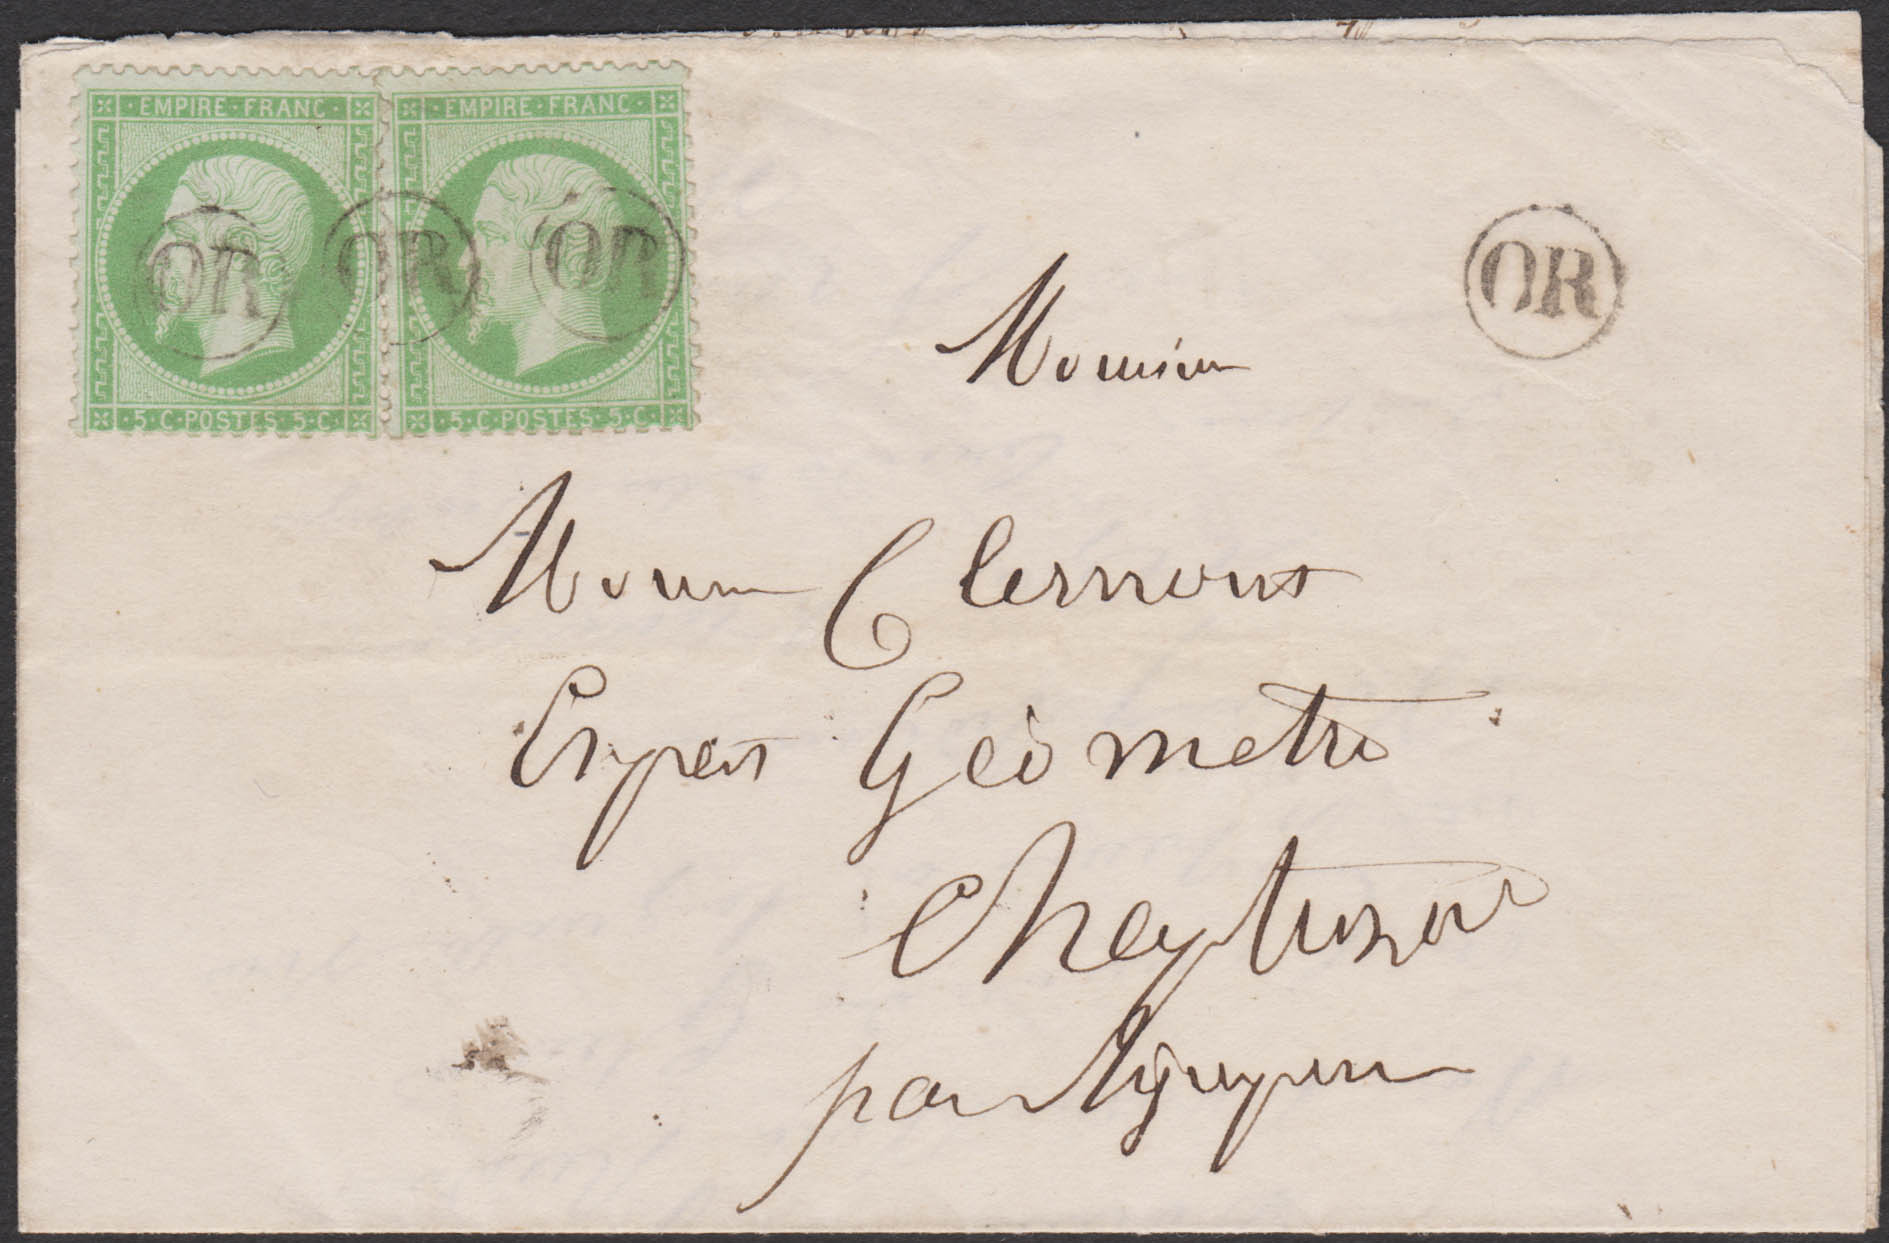 · EMPIRE · FRANC · · EMPIRE · FRANC ·
OR OR OR OR
· 5 · C · POSTES · 5 · C · · 5 · C · POSTES · 5 · C ·
Monsieur
Monsieur Clermont
Expert Géomètre
par